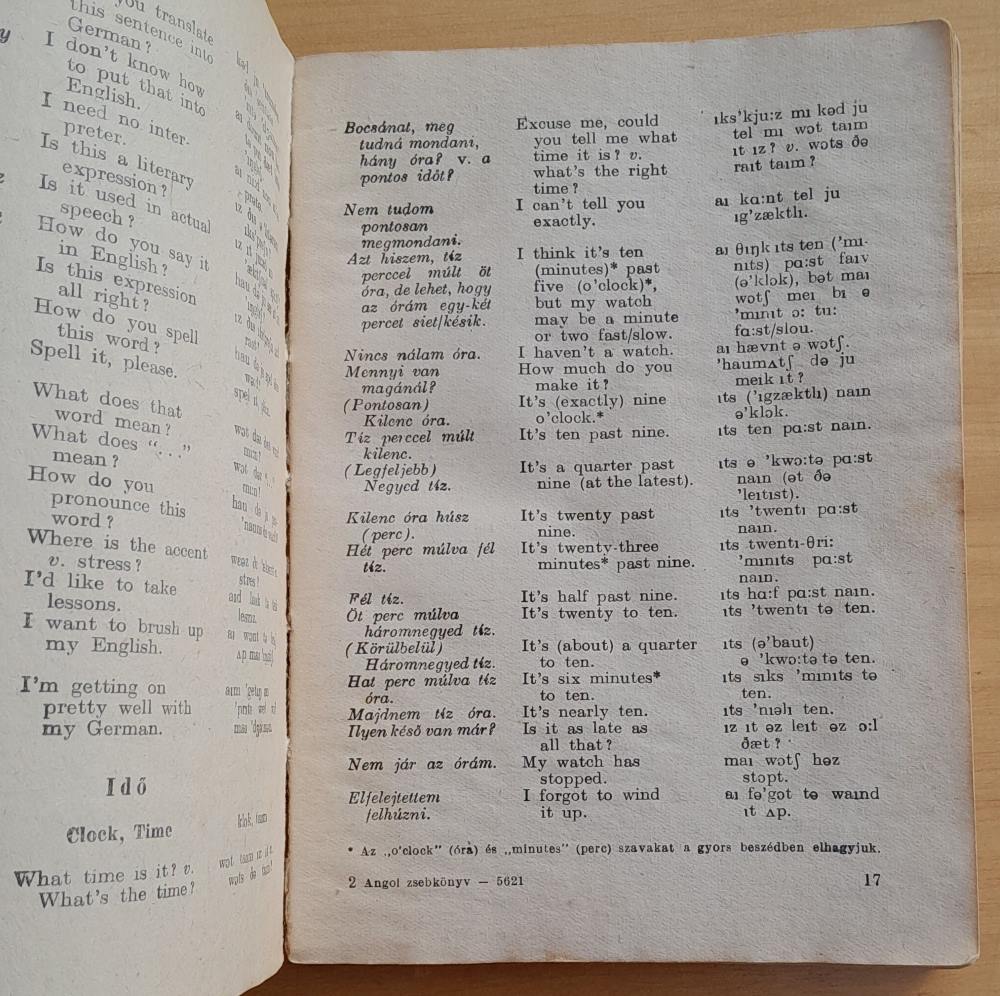 you translate
this sentence into
German?
I don't know how
to put that into
English.
I need no inter-
preter.
Is this a literary
expression?
Is it used in actual
speech?
How do you say it
in English?
Is this expression
all right?
How do you spell
this word?
Spell it, please.
What does that
word mean?
What does “...”
mean?
How do you
pronounce this
word?
Where is the accent
v. stress?
I'd like to take
lessons.
I want to brush up
my English.
I'm getting on
pretty well with
my German.
Idő
Clock, Time
klɒk, taɪm
What time is it? v.
What's the time?
Bocsánat, meg
tudná mondani,
hány óra? v. a
pontos időt?
Excuse me, could
you tell me what
time it is? v.
what's the right
time?
ɪks'kju:z mɪ kəd ju
tel mɪ wɒt taɪm
ɪt ɪz? v. wɒts ðə
raɪt taɪm?
Nem tudom
pontosan
megmondani.
I can't tell you
exactly.
aɪ kɑ:nt tel ju
ɪg'zæktlɪ.
Azt hiszem, tíz
perccel múlt öt
óra, de lehet, hogy
az órám egy-két
percet siet/késik.
I think it's ten
(minutes)* past
five (o'clock)*,
but my watch
may be a minute
or two fast/slow.
aɪ θɪŋk ɪts ten ('mɪ-
nɪts) pɑ:st faɪv
(ə'klɒk), bət maɪ
wɒtʃ meɪ bɪ ə
'mɪnɪt ɔ: tu:
fɑ:st/slou.
Nincs nálam óra.
I haven't a watch.
aɪ hævnt ə wɒtʃ.
Mennyi van
magánál?
How much do you
make it?
'haumʌtʃ də ju
meɪk ɪt?
(Pontosan)
Kilenc óra.
It's (exactly) nine
o'clock.*
ɪts ('ɪgzæktlɪ) naɪn
ə'klɒk.
Tíz perccel múlt
kilenc.
It's ten past nine.
ɪts ten pɑ:st naɪn.
(Legfeljebb)
Negyed tíz.
It's a quarter past
nine (at the latest).
ɪts ə 'kwɔ:tə pɑ:st
naɪn (ət ðə
'leɪtɪst).
Kilenc óra húsz
(perc).
It's twenty past
nine.
ɪts 'twentɪ pɑ:st
naɪn.
Hét perc múlva fél
tíz.
It's twenty-three
minutes* past nine.
ɪts twentɪ-θri:
'mɪnɪts pɑ:st
naɪn.
Fél tíz.
It's half past nine.
ɪts hɑ:f pɑ:st naɪn.
Öt perc múlva
háromnegyed tíz.
It's twenty to ten.
ɪts 'twentɪ tə ten.
(Körülbelül)
Háromnegyed tíz.
It's (about) a quarter
to ten.
ɪts (ə'baut)
ə 'kwɔ:tə tə ten.
Hat perc múlva tíz
óra.
It's six minutes*
to ten.
ɪts sɪks 'mɪnɪts tə
ten.
Majdnem tíz óra.
It's nearly ten.
ɪts 'nɪəlɪ ten.
Ilyen késő van már?
Is it as late as
all that?
ɪz ɪt əz leɪt əz ɔ:l
ðæt?
Nem jár az órám.
My watch has
stopped.
maɪ wɒtʃ həz
stɒpt.
Elfelejtettem
felhúzni.
I forgot to wind
it up.
aɪ fə'gɒt tə waɪnd
ɪt ʌp.
* Az „o'clock” (óra) és „minutes” (perc) szavakat a gyors beszédben elhagyjuk.
2 Angol zsebkönyv — 5621
17